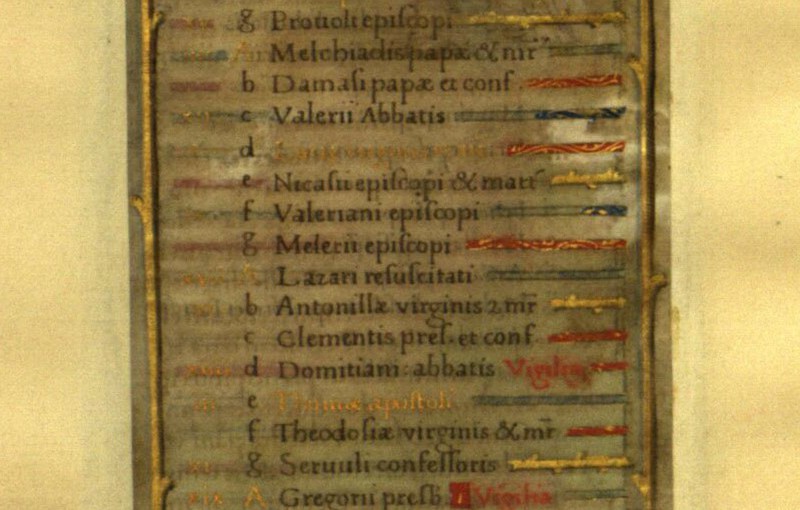 g Protolt episcopi
A Melchiadis papæ & mr̄
b Damasi papæ et conf
c Valerii Abbatis
d
e Nicasii episcopi & mart
f Valeriani episcopi
g Melerii episcopi
A Lazari resuscitati
b Antonillæ virginis 2 mr̄
c Clementis presb. et conf
d Domitiani abbatis Vigilia
e Thomæ apostoli
f Theodosiæ virginis & mr̄
g Seruuli confessoris
A Gregorii presb. Vigilia